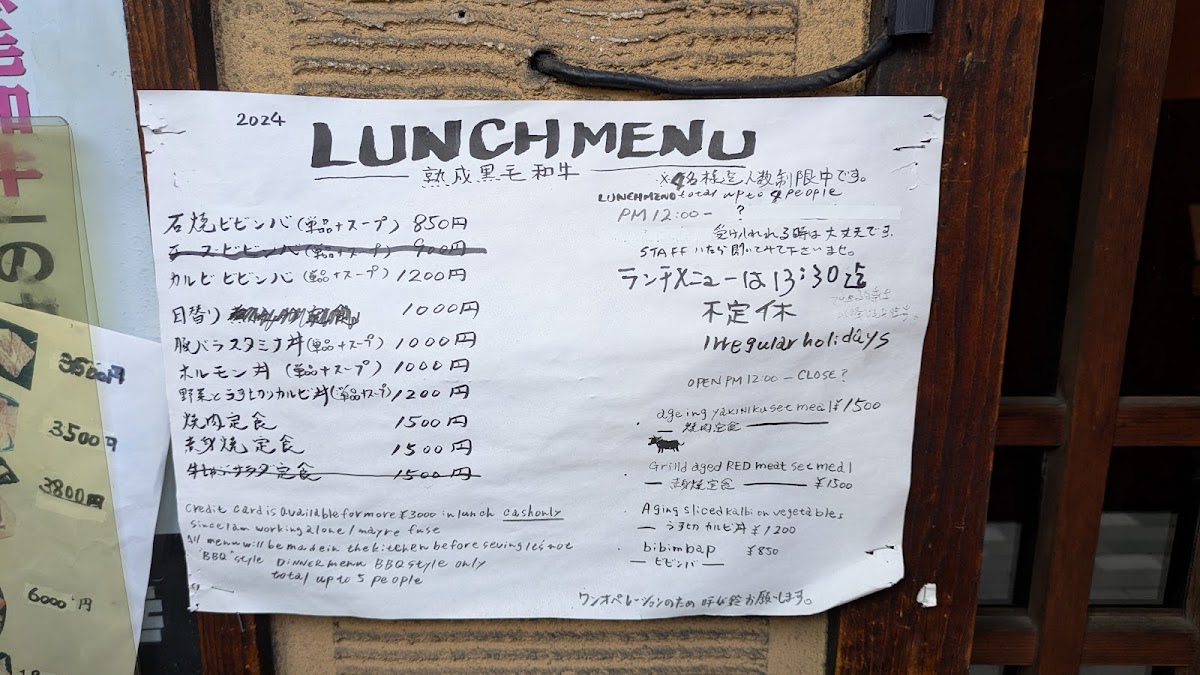 2024
LUNCH MENU
熟成黒毛和牛
石焼ビビンバ(単品+スープ) 850円
チーズビビンバ(単品+スープ) 900円
カルビビビンバ(単品+スープ) 1200円
日替り 1000円
豚バラスタミナ丼(単品+スープ) 1000円
ホルモン丼 (単品+スープ) 1000円
野菜とうす切りカルビ丼(単品+スープ) 1200円
焼肉定食 1500円
赤身焼定食 1500円
サラダ定食 1500円
Credit card is available for more ¥3000 in lunch cash only
Since I am working alone I may re fuse
All menu will be made in the kitchen before seving It's not
"BBQ" style DINNER menu BBQ style only
total up to 5 people
※4名様迄人数制限中です。
LUNCH MENU total up to 4 people
PM 12:00- ?
受け入れれる時は大丈夫です。
STAFF いたら聞いてみて下さいませ。
ランチメニューは13:30迄
不定休
Irregular holidays
OPEN PM 12:00 - CLOSE?
・ageing YAKINIKU set meal ¥1500
焼肉定食
・Grilld aged RED meat set meal
赤身焼定食 ¥1500
・Aging sliced kalbi on vegetables
うす切カルビ丼 ¥1200
・bibimbap ¥850
ビビンバ
ワンオペレーションのため呼び鈴お願いします。
3500円
3500円
3800円
6000円